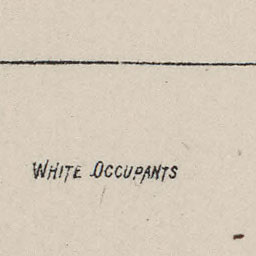 WHITE OCCUPANTS